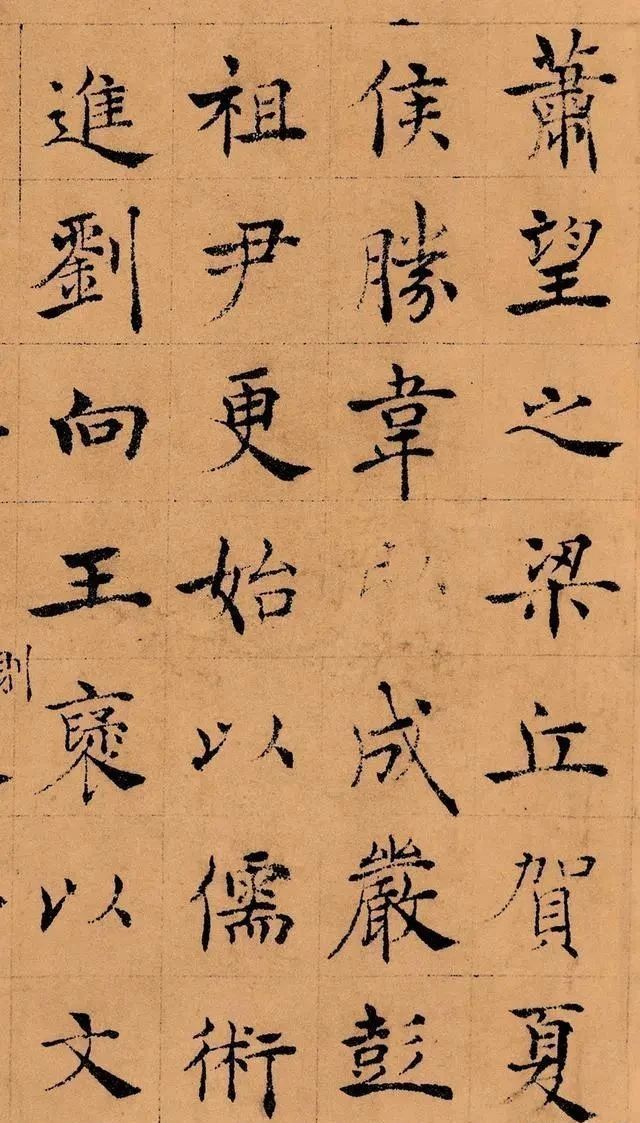 蕭望之梁丘賀夏
侯勝韋成嚴彭
祖尹更始以儒術
進劉向王褒以文